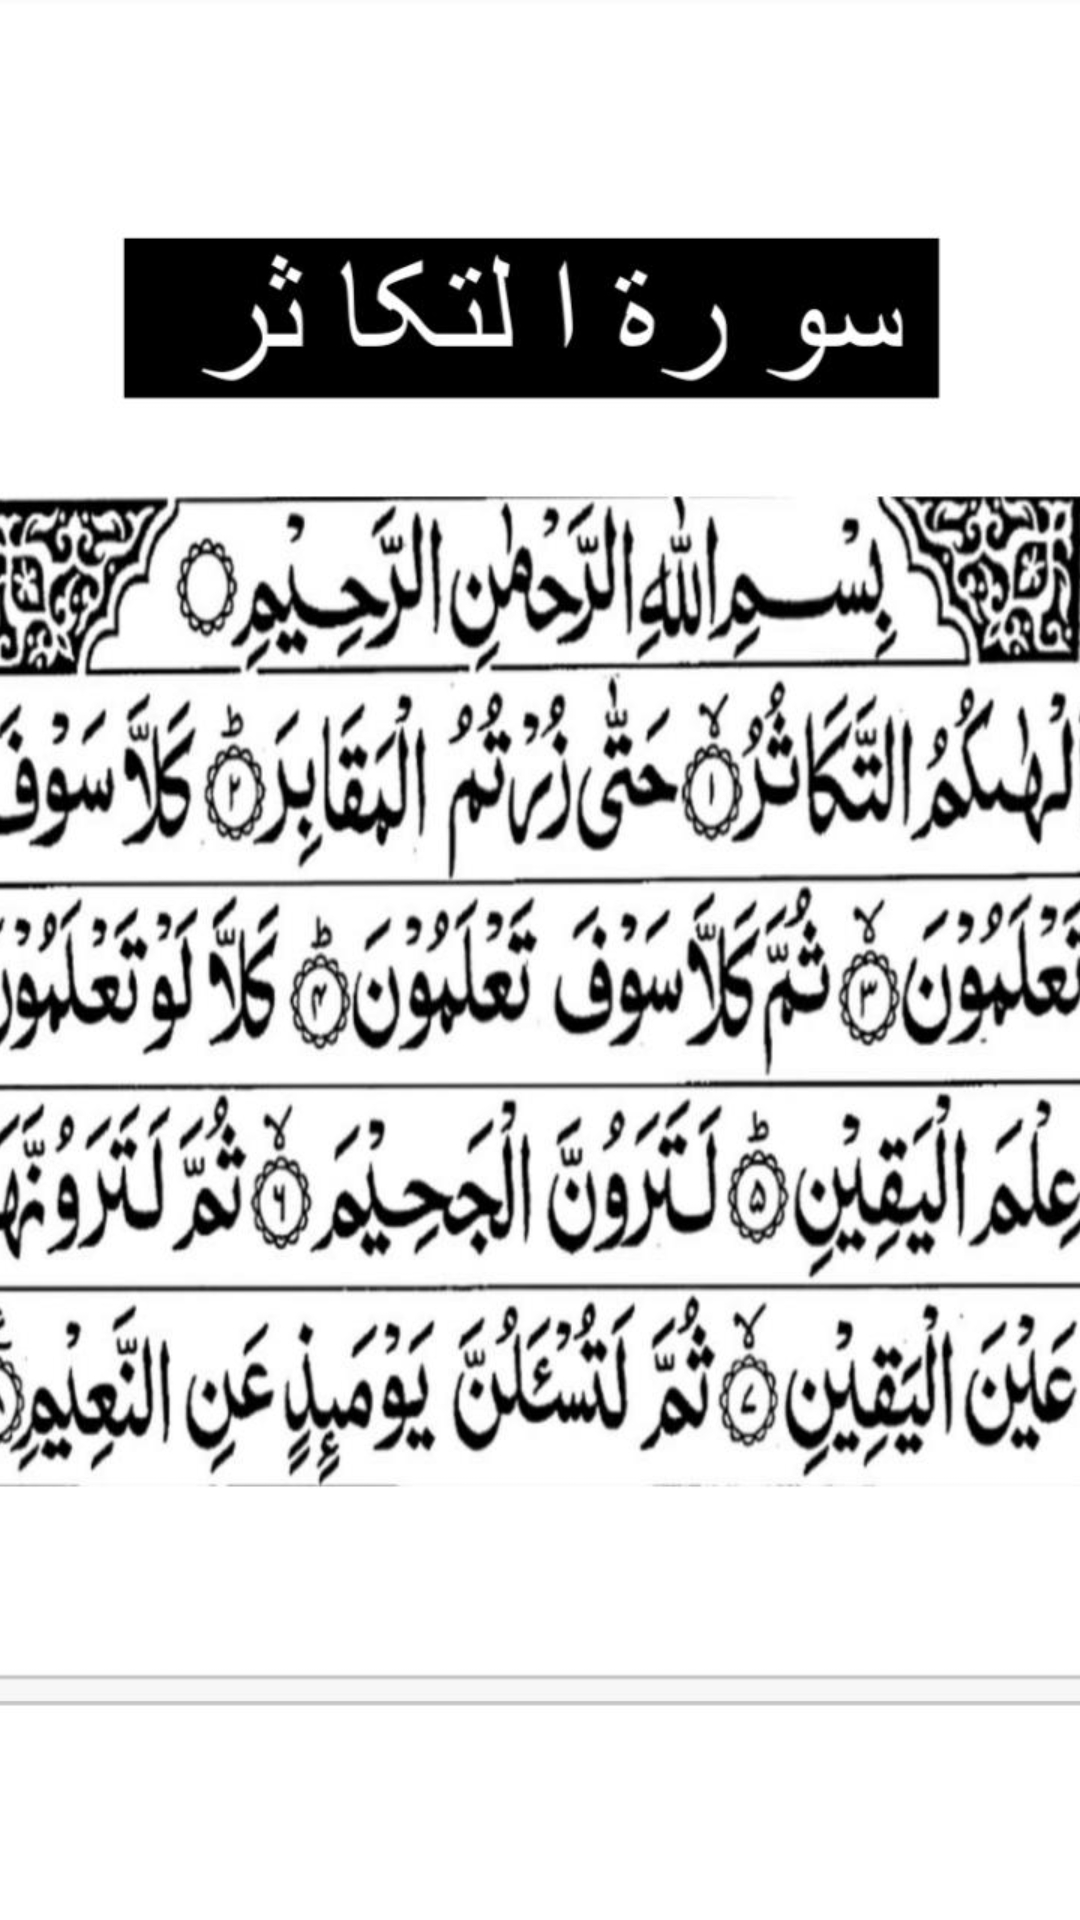 سورة التكاثر
بِسْمِ اللهِ الرَّحْمٰنِ الرَّحِيْمِ
اَلْهٰىكُمُ التَّكَاثُرُ ۙ﴿۱﴾ حَتّٰى زُرْتُمُ الْمَقَابِرَ ؕ﴿۲﴾ كَلَّا سَوْفَ
تَعْلَمُوْنَ ۙ﴿۳﴾ ثُمَّ كَلَّا سَوْفَ تَعْلَمُوْنَ ؕ﴿۴﴾ كَلَّا لَوْ تَعْلَمُوْنَ
عِلْمَ الْيَقِيْنِ ؕ﴿۵﴾ لَتَرَوُنَّ الْجَحِيْمَ ۙ﴿۶﴾ ثُمَّ لَتَرَوُنَّهَا
عَيْنَ الْيَقِيْنِ ۙ﴿۷﴾ ثُمَّ لَتُسْـَٔلُنَّ يَوْمَىِٕذٍ عَنِ النَّعِيْمِ